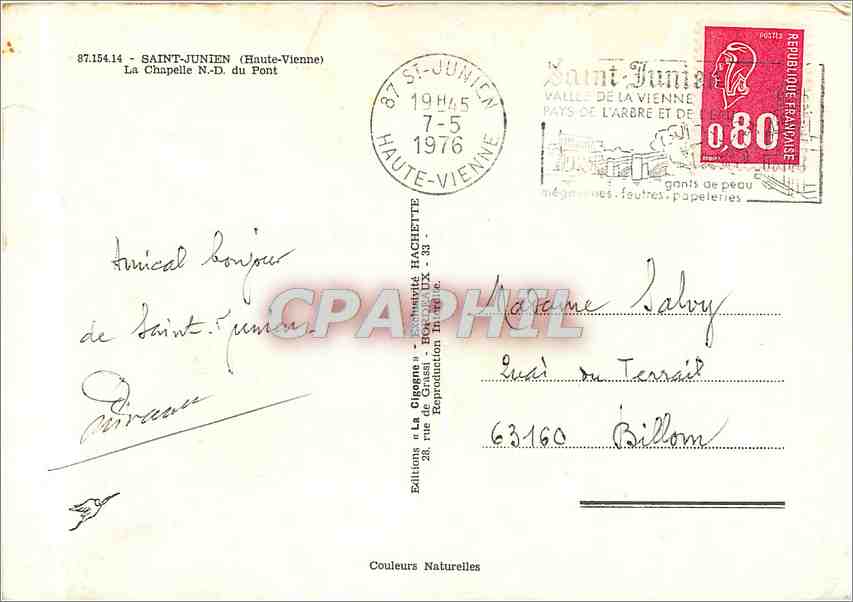 87.154.14 - SAINT-JUNIEN (Haute-Vienne)
La Chapelle N.-D. du Pont
87 ST-JUNIEN
19H45
7-5
1976
HAUTE-VIENNE
Saint-Junien
VALLEE DE LA VIENNE
PAYS DE L'ARBRE ET DE
gants de peau
mégisseries. feutres. papeteries
POSTES
REPUBLIQUE FRANÇAISE
0,80
Amical bonjour
de Saint-Junien
Madame Salvy
Quai du Terrail
63160 Billom
Editions « La Cigogne » - Exclusivité HACHETTE
28, rue de Grassi - BORDEAUX - 33 -
Reproduction Interdite.
CPAPHIL
Couleurs Naturelles